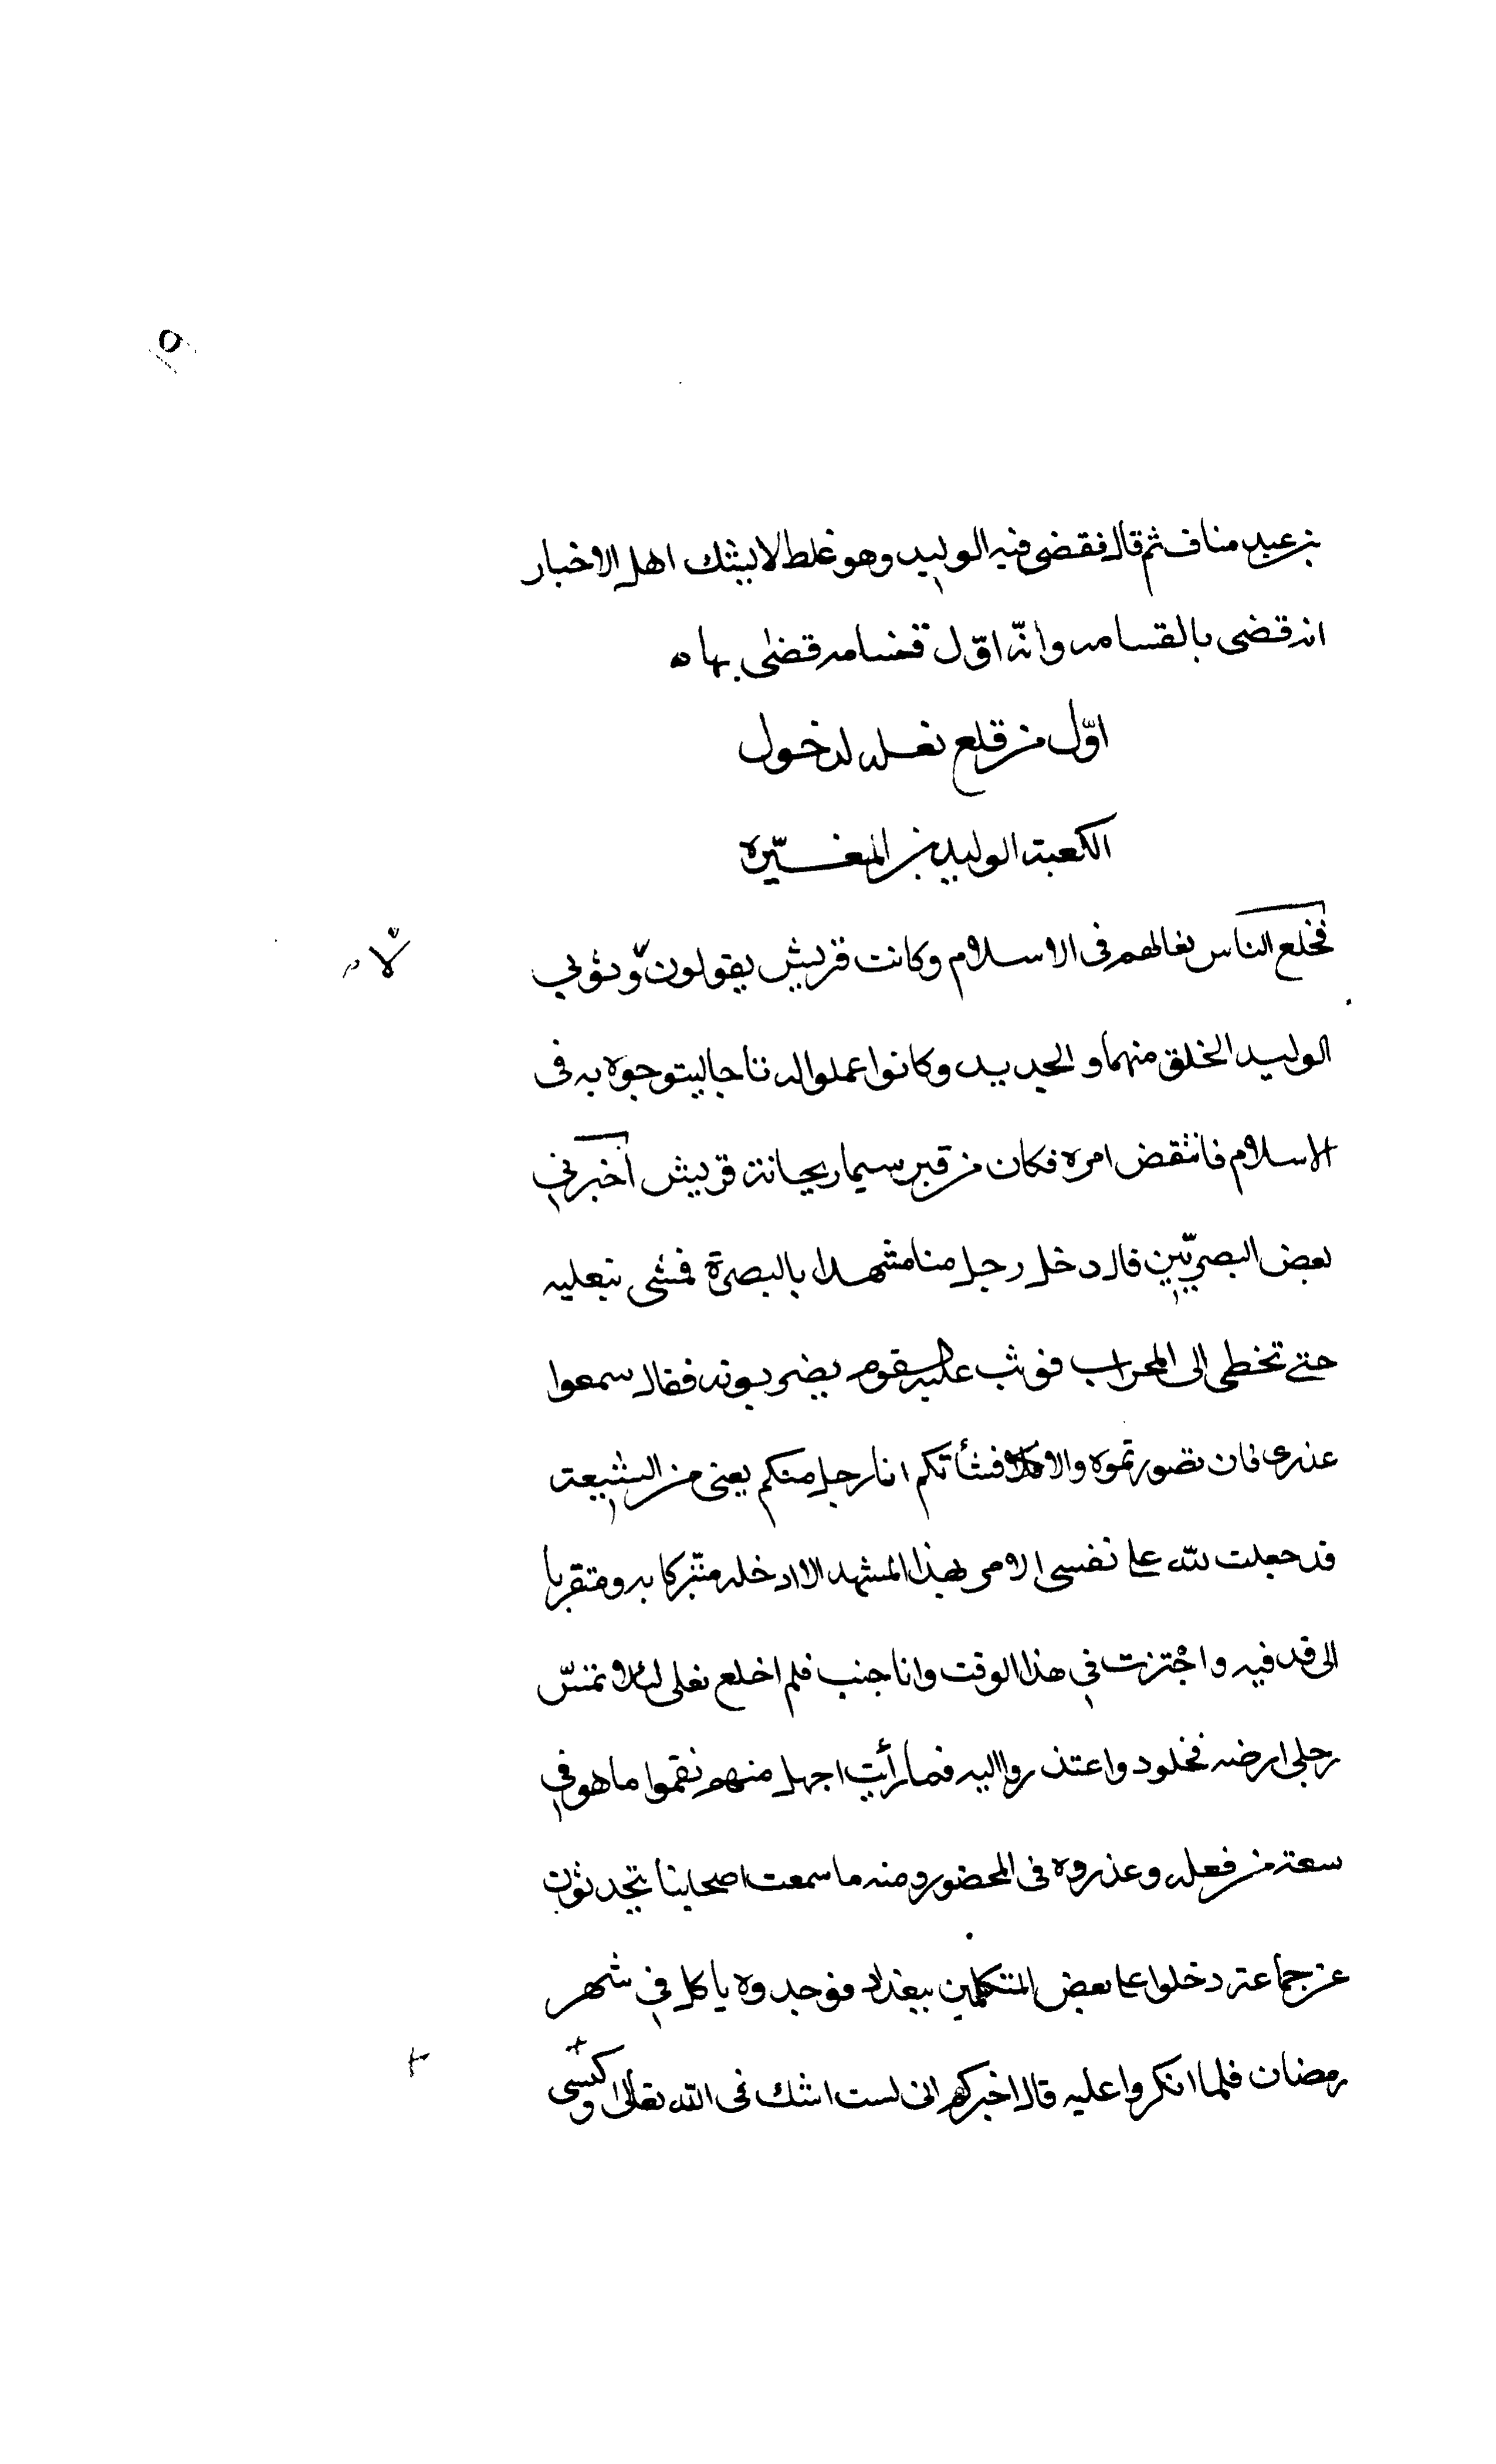 ٥
بن عبد مناف ثم قال فقضى فيه الوليد وهو غلط لا يشك اهل الاخبار
انه قضى بالقسامه وانّه اوّل قسامه قضى بها ه
اوّل من قلع نعله لدخول
الكعبة الوليد بن المغيّره
فخلع الناس نعالهم فى الاسلام وكانت قريش يقولون وثوبي لا
الوليد الخلق منهما والجديد وكانوا عملوا له تاجا ليتوجوه به فى
الاسلام فانتقض امره فكان من قبر سيما ريحانة قريش أخبرني
بعض البصريّين قال دخل رجل منا مشهدا بالبصرة فمشى بنعليه
حتى تخطى الى المحراب فوثب عليه القوم يضربونه فقال سمعوا
عذرى فان تصورتموه والا فشأنكم انا رجل منكم يعنى من الشيعة
قد جعلت لله على نفسى الامر بهذا المشهد الا ادخله متبركا به ومتقربا
الى قد فيه واجْتزت في هذا الوقت وانا جنب فلم اخلع نعلى لئلا تمسّ
رجلى ارضه فخلود واعتذروا اليه فما رأيت اجهل منهم نقموا ما هو في
سعة من فعله وعذروه فى المحضور ومنه ما سمعت اصحابنا يتحدثون
عن جماعة دخلوا على بعض المتكلمين ببغداد فوجدوه ياكل في شهر
رمضان فلما انكروا عليه قال اخبركم انى لست اشك فى الله تعالى